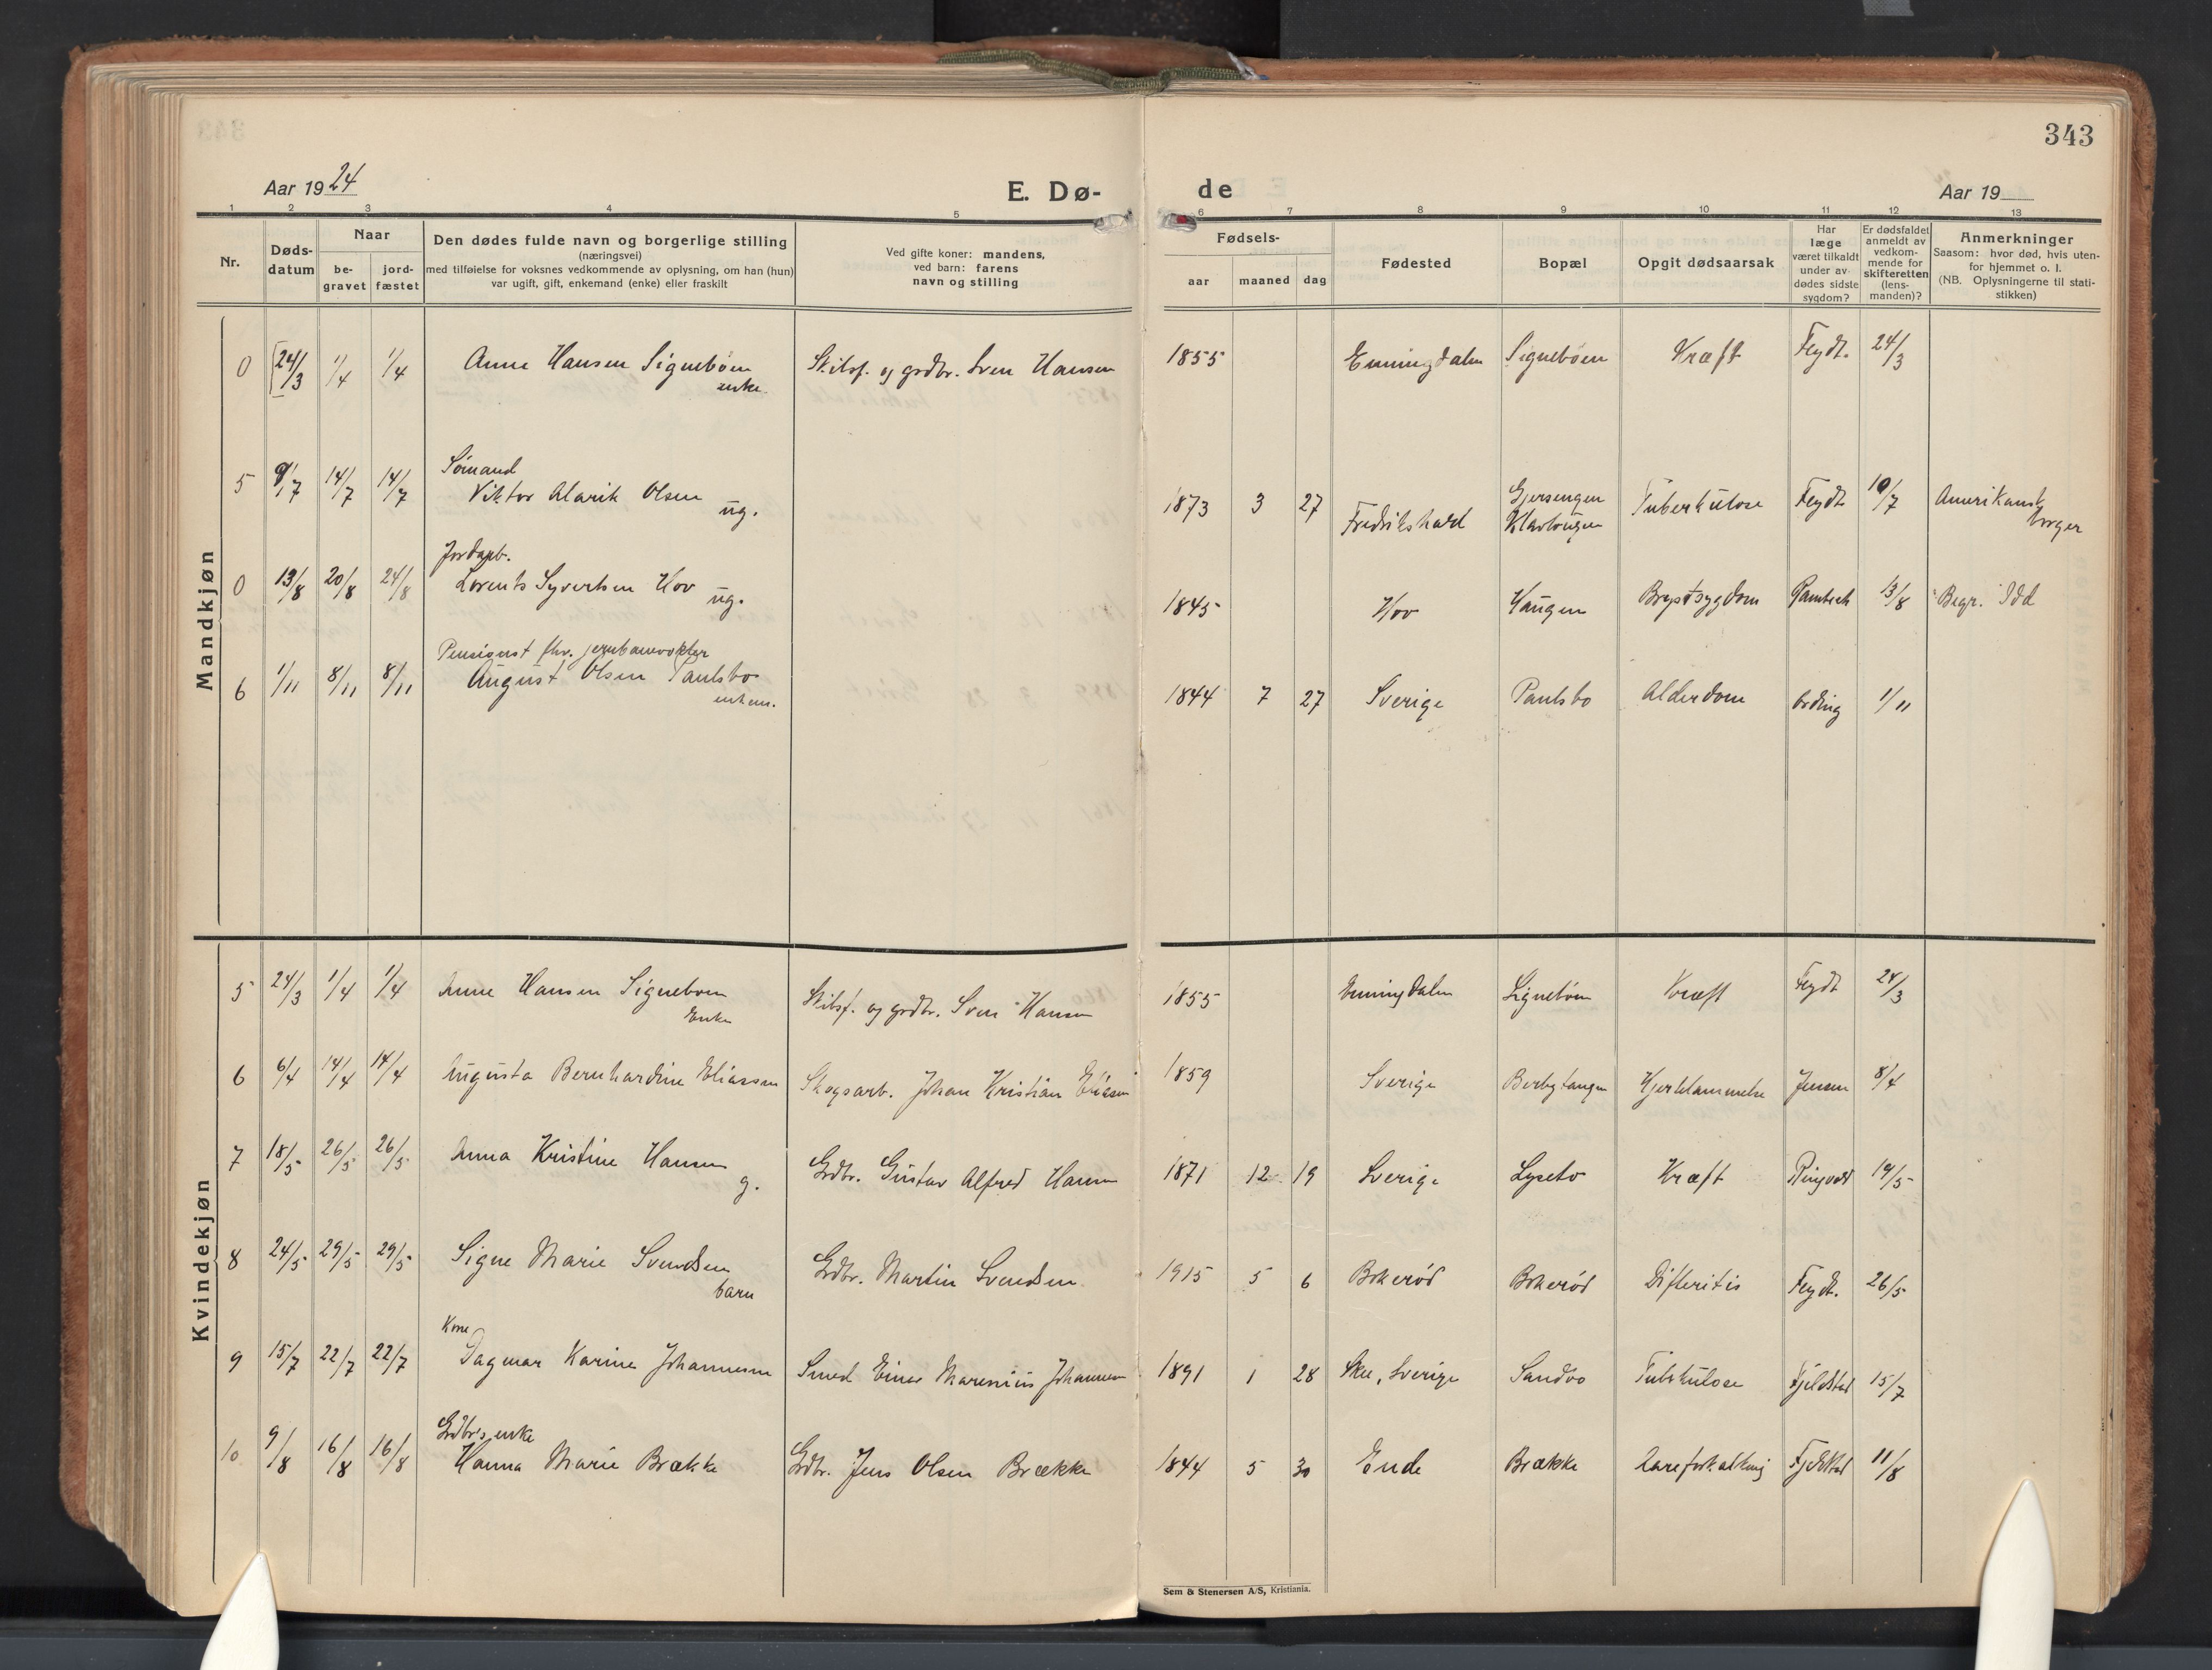 343
Aar 1924
E. Dø-
de
Aar 19
1 2 3 4 5 6 7 8 9 10 11 12 13
Nr.
Døds-
datum
Naar
be-
gravet
jord-
fæstet
Den dødes fulde navn og borgerlige stilling
(næringsvei)
med tilføielse for voksnes vedkommende av oplysning, om han (hun)
var ugift, gift, enkemand (enke) eller fraskilt
Ved gifte koner: mandens,
ved barn: farens
navn og stilling
Fødsels-
aar
maaned
dag
Fødested
Bopæl
Opgit dødsaarsak
Har
læge
været tilkaldt
under av-
dødes sidste
sygdom?
Er dødsfaldet
anmeldt av
vedkom-
mende for
skifteretten
(lens-
manden)?
Anmerkninger
Saasom: hvor død, hvis uten-
for hjemmet o. l.
(NB. Oplysningerne til stati-
stikken)
Mandkjøn
0 24/3 1/4 1/4 Anne Hansen Signebøen Skibsf. og grdbr. Sven Hansen 1855 Enningdalen Signebøen Kræft Feydt. 24/3
enke
Sømand
5 9/7 14/7 14/7 Viktor Alarik Olsen ug. 1873 3 27 Fredrikshald Gjersengen Tuberkulose Feydt 10/7 Amerikansk
borger
Jordarb.
0 13/8 20/8 24/8 Lorents Syvertsen Hov ug. 1845 Hov Haugen Brystsygdom 13/8 Begr. Idd
Pensionist fhv. jernbanevokter
6 1/11 8/11 8/11 August Olsen Paulsbo 1844 7 27 Sverige Paulsbo Alderdom Ording 1/11
enkem.
Kvindekjøn
5 24/3 1/4 1/4 Anne Hansen Signebøen Skibsf. og grdbr. Sven Hansen 1855 Enningdalen Signebøen Kræft Feydt 24/3
Enke
6 6/4 14/4 14/4 Augusta Bernhardine Eliassen Skogsarb. Johan Kristian Eliassen 1859 Sverige Berbytangen Hjertelammelse Jensen 8/4
7 18/5 26/5 26/5 Anna Kristine Hansen g. Grdbr. Gustav Alfred Hansen 1871 12 19 Sverige Lyseto Kræft Ringvold 19/5
8 24/5 29/5 29/5 Signe Marie Svendsen Grdbr. Martin Svendsen 1915 5 6 Bokerød Bokerød Difteritis Feydt. 26/5
barn
Kone
9 15/7 22/7 22/7 Dagmar Karine Johannesen Smed Einar Marenius Johannesen 1891 1 28 Skee, Sverige Sandvo Tuberkulose Fjeldstad 15/7
Grdbr's enke
10 9/8 16/8 16/8 Hanna Marie Brække Grdbr. Jens Olsen Brække 1844 5 30 Ende Brække Aareforkalkning Fjeldstad 11/8
Sem & Stenersen A/S, Kristiania.